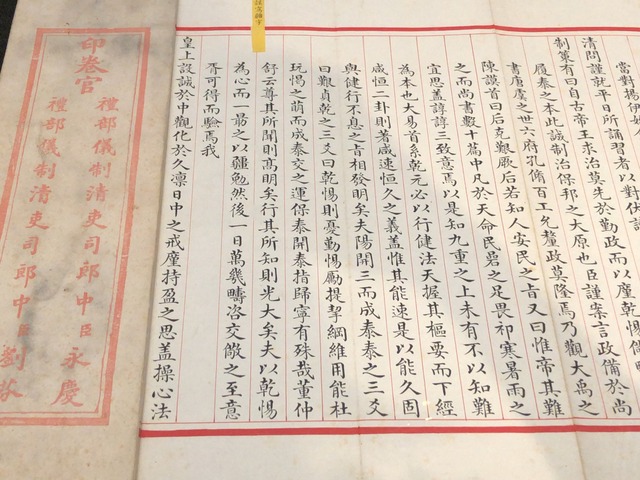 當對揚伊始
清問謹就平日所誦習者以對伏讀
制策有曰自古帝王求治莫先於勤政而以廑乾惕備
履泰之本此誠制治保邦之大原也臣謹案言政備於尚
書唐虞之世六府孔脩百工允釐政莫隆焉乃觀大禹之
陳謨首曰后克艱厥后若知人安民之旨又曰惟帝其難
之而尚書數十篇中凡於天命民碞之足畏祁寒暑雨之
宜思蓋諄諄三致意焉以是知九重之上未有不以知難
為本也大易首系乾元必以行健法天握其樞要而下經
咸恒二卦則著咸速恒久之義蓋惟其能速是以能久固
與健行不息之旨相發明矣夫陽開三而成泰泰之三爻
曰艱貞乾之三爻曰乾惕則憂勤惕厲提挈綱維用能杜
玩愒之萌而成泰交之運保泰開泰指歸寧有殊哉董仲
舒云尊其所聞則高明矣行其所知則光大矣夫以乾惕
為心而一最之以彊勉然後一日萬幾疇咨交儆之至意
胥可得而驗焉我
皇上設誠於中觀化於久凜日中之戒廑持盈之思蓋操心法
印卷官
禮部儀制清吏司郎中臣永慶
禮部儀制清吏司郎中臣劉芬